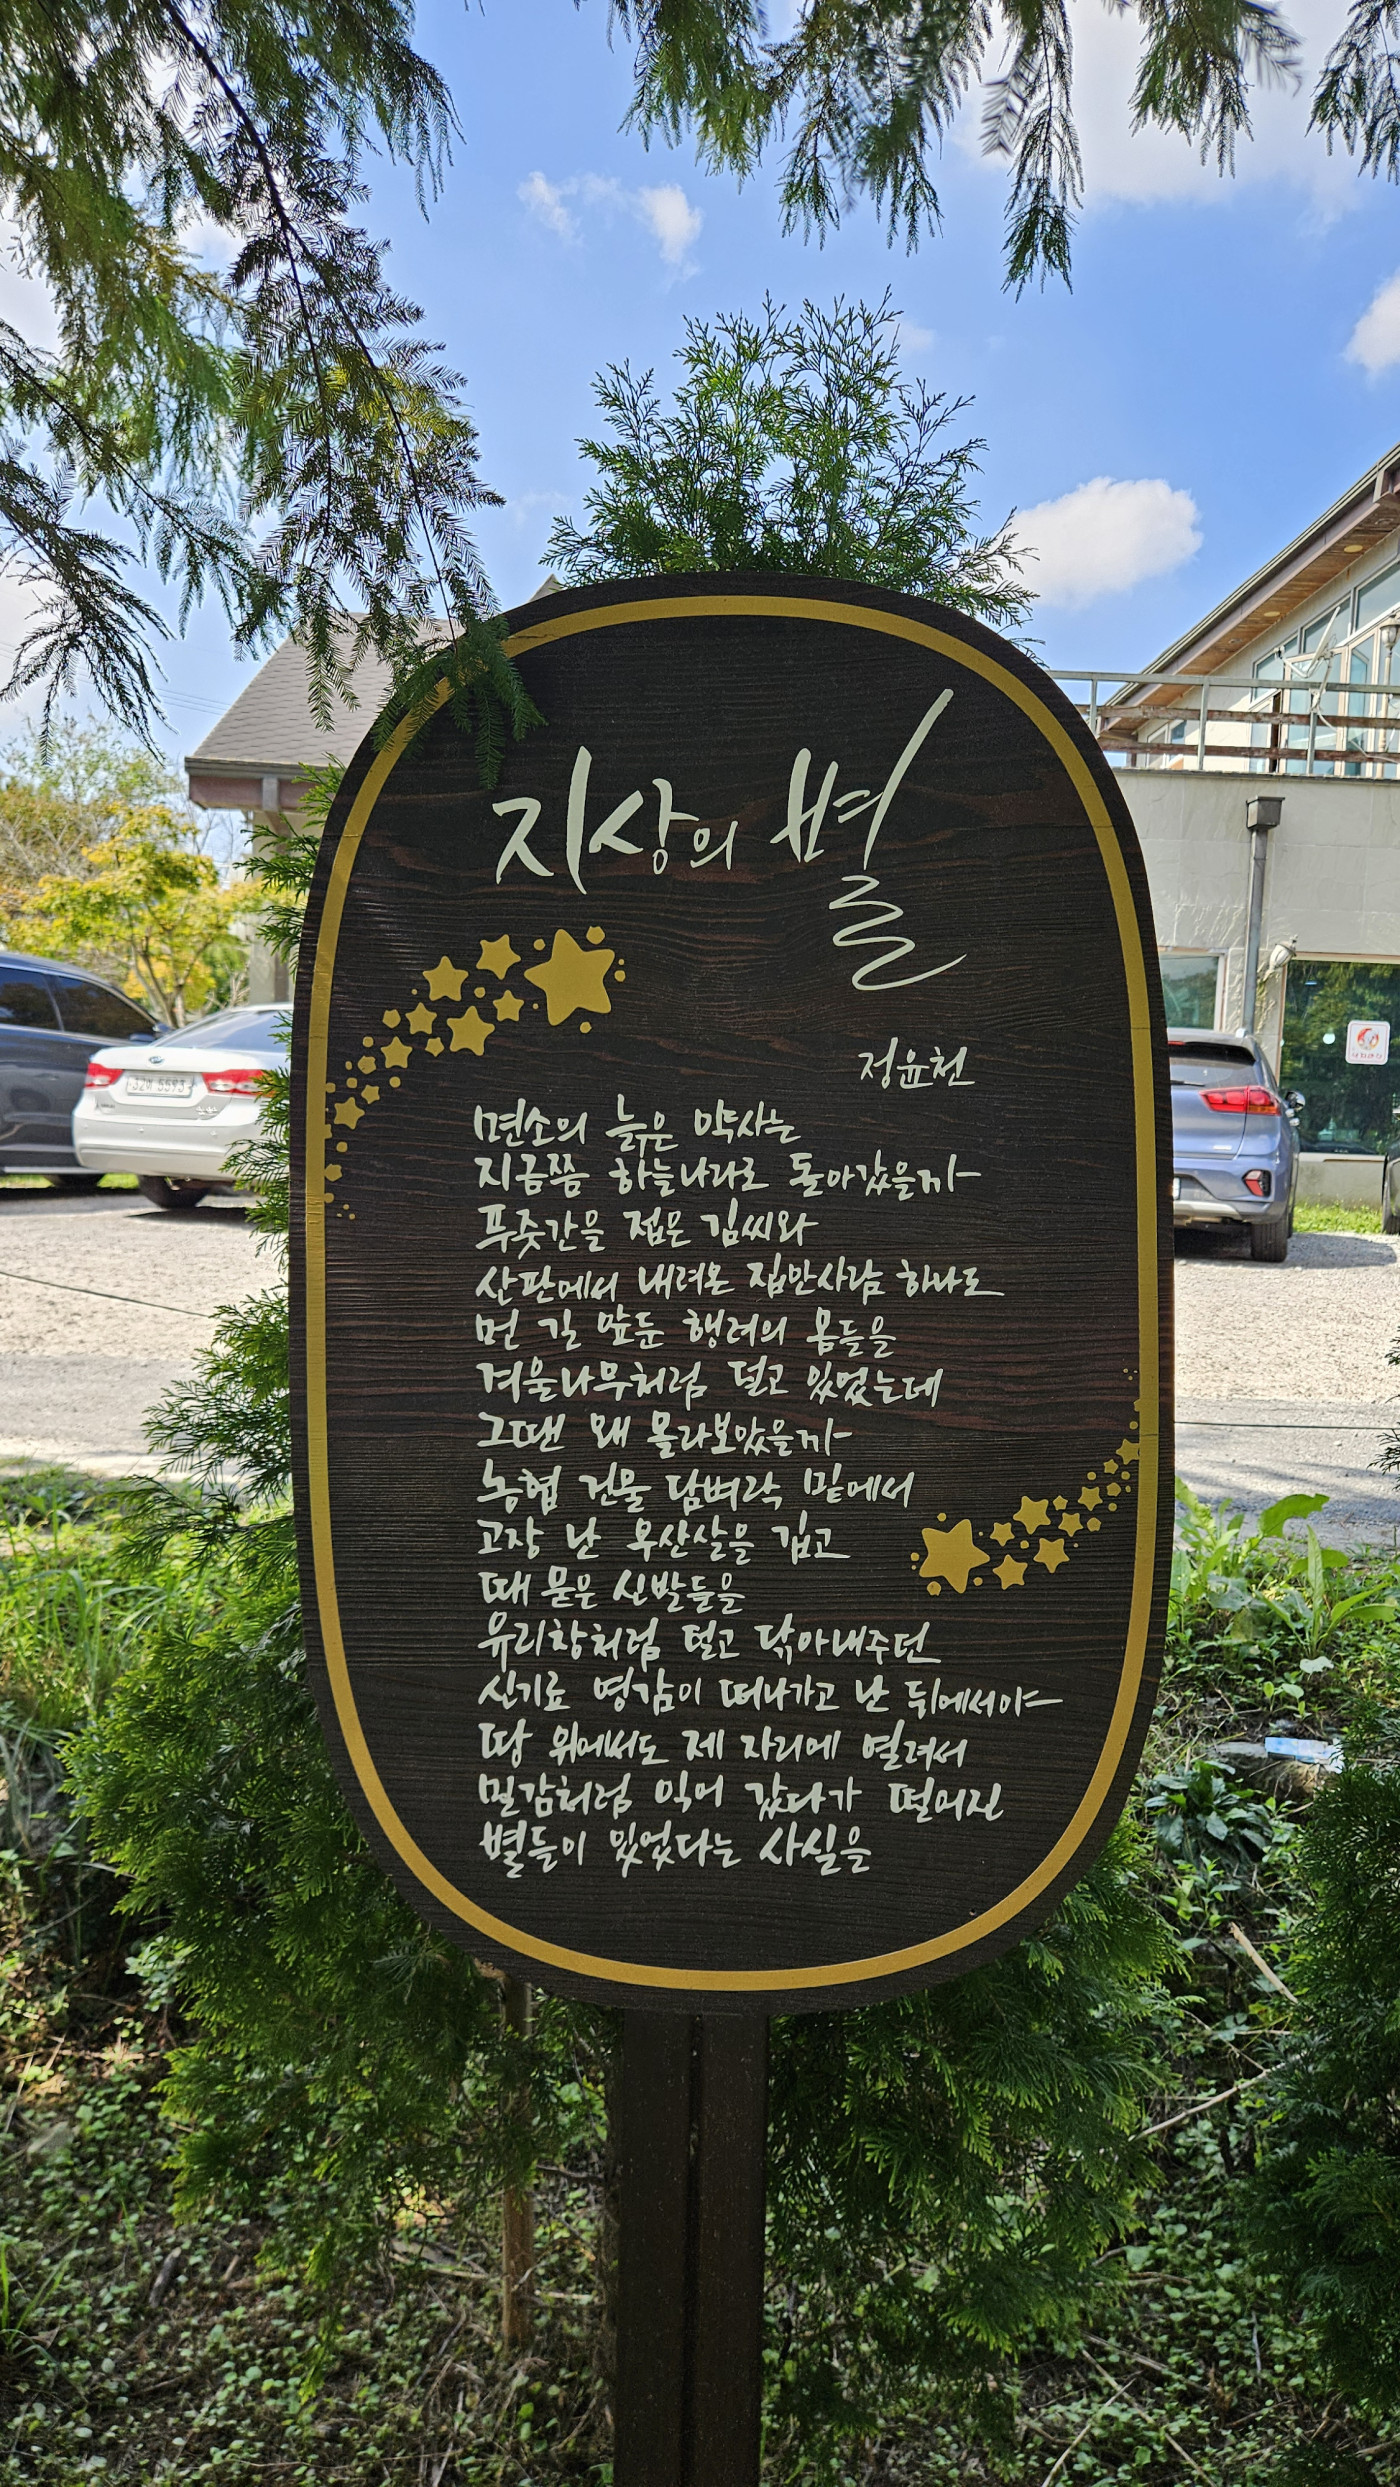 지상의 별
정윤천
면소의 늙은 약사는
지금쯤 하늘나라로 돌아갔을까
푸줏간을 접은 김씨와
산판에서 내려온 집안사람 하나도
먼 길 앞둔 행려의 몸들을
겨울나무처럼 덜고 있었는데
그땐 왜 몰라보았을까
농협 건물 담벼락 밑에서
고장 난 우산살을 깁고
때 묻은 신발들을
유리창처럼 덜고 닦아내주던
신기료 영감이 떠나가고 난 뒤에서야
땅 위에서도 제 자리에 열려서
밀감처럼 익어 갔다가 떨어진
별들이 있었다는 사실을